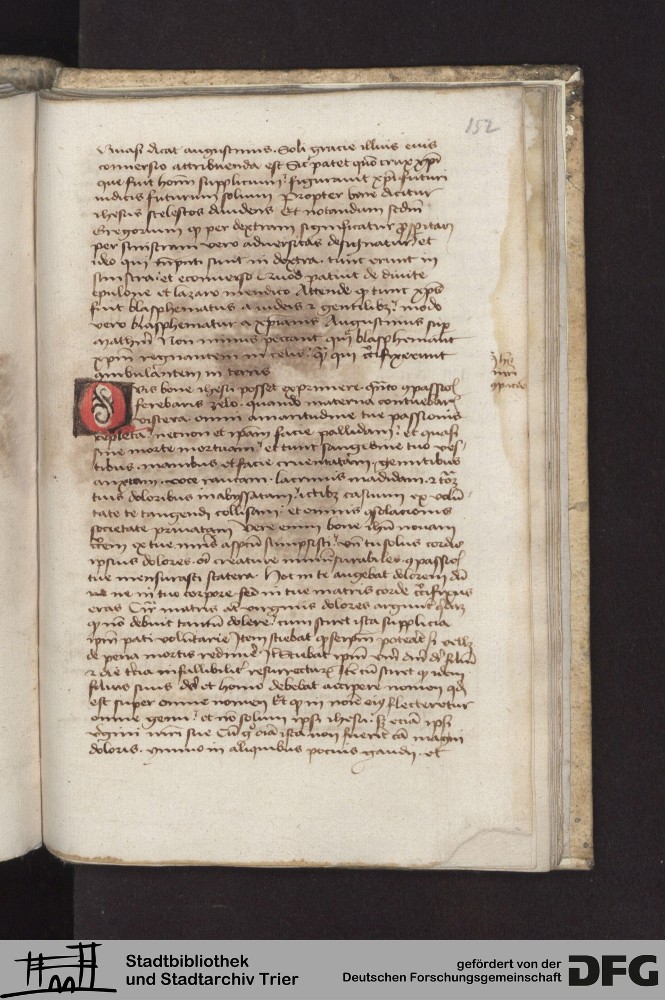 152
Quasi dicat augustinus. Soli gracie illius eius
conuersio attribuenda est Sic patet quo crux xpi
que fuit homi supplicium figurauit xpi futuri
iudicis futurum solium Propter hane dicitur
ihesus scelestos diuidens Et notandum scdm
Gregorium qp per dextram significatur prosperitas
per sinistram vero aduersitas designatur et
ideo qui sunt in dextra tunc erunt in
sinistra et econuerso Quod patuit de diuite
epulone et lazaro mendico Attende qp tunc xps
fuit blasphematus a iudeis 2 gentilibz modo
vero blasphematur a xpianis Augustinus sup
Matheu Non minus peccant qui blasphemant
xpm regnantem in celis qui crucifixerunt
ambulantem in terris
Quis bone ihesu posset exprimere quto passiois
ferebaris zelo quando materna contuebaris
viscera omni amaritudine tue passionis
repleta necnon et ipam facie pallidam et quasi
sine morte mortuam et tunc sanguine tuo ves
tibus manibus et facie cruentatam gemitibus
anxiam voce raucam lacrimis madidam 2
tuis doloribus inabyssatam ictibz casuum ex volu
tate te tangendi collisam et omnis solacionis
societate priuatam Vere enim bone ihu nouam
crucem ex tue mris aspectu sumpsisti tu solus cordis
ipsius dolores creature inmensurabiles passiois
tue mensurasti statera Hoc in te augebat dolorem
ne in tuo corpore sed in tue matris corde crucifixus
eras Cur matris virginis dolores arguunt
qp no debuit tantum dolere cum sciret ista supplicia
ipm pati voluntarie Item sciebat qp serpm poterat si vellz
de pena mortis redimere sciebat ipm dei filium
2 die tercia infallibilit resurrecturum Et cum sciret qp idem
filius suus deus et homo debebat accipere nomen qd
est super omne nomen Et qp in noie eius flecteretur
omne genu et no solum ipsi ihesu sed eciam ipsi
virgini mri sue Cum ergo oia ista non fuerit ca magni
doloris ymmo in aliquibus pocius gaudii et
Stadtbibliothek
und Stadtarchiv Trier
gefördert von der
Deutschen Forschungsgemeinschaft
DFG